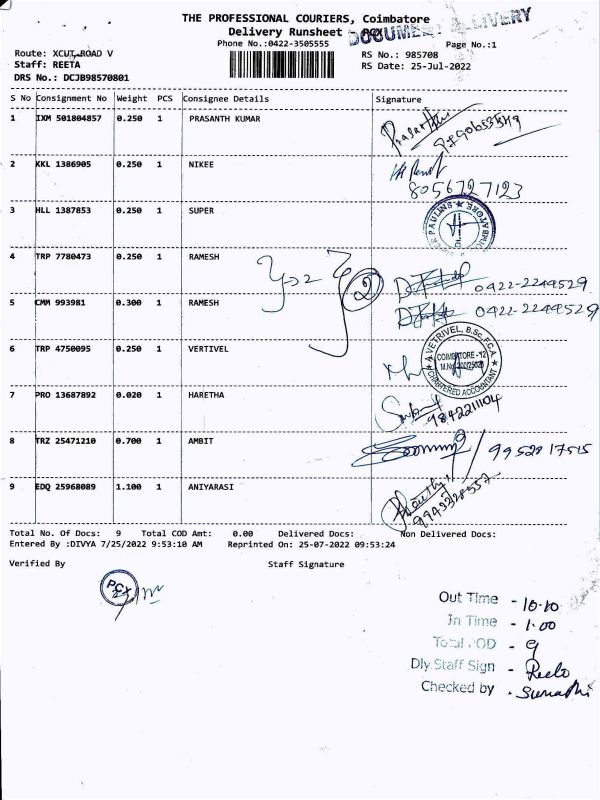 THE PROFESSIONAL COURIERS, Coimbatore
Delivery Runsheet - POX
DOCUMENT DELIVERY
Phone No.:0422-3505555
Page No.:1
Route: XCUT-ROAD V
RS No.: 985708
Staff: REETA
RS Date: 25-Jul-2022
DRS No.: DCJB98570801
S No Consignment No Weight PCS Consignee Details Signature
1 IXM 501804857 0.250 1 PRASANTH KUMAR
2 KKL 1386905 0.250 1 NIKEE
8056727123
3 HLL 1387853 0.250 1 SUPER
4 TRP 7780473 0.250 1 RAMESH 0422-2244529
5 CMM 993981 0.300 1 RAMESH 0422-2244529
6 TRP 4750095 0.250 1 VERTIVEL
A.VETRIVEL, B.Sc., F.C.A.
COIMBATORE - 12
CHARTERED ACCOUNTANT
7 PRO 13687892 0.020 1 HARETHA
9842211104
8 TRZ 25471210 0.700 1 AMBIT 9952817515
9 EDQ 25968089 1.100 1 ANIYARASI
Total No. Of Docs: 9 Total COD Amt: 0.00 Delivered Docs: Non Delivered Docs:
Entered By :DIVYA 7/25/2022 9:53:10 AM Reprinted On: 25-07-2022 09:53:24
Verified By Staff Signature
Out Time - 10.10
In Time - 1.00
Total POD - 9
Dly.Staff Sign - Reeta
Checked by - Sumathi